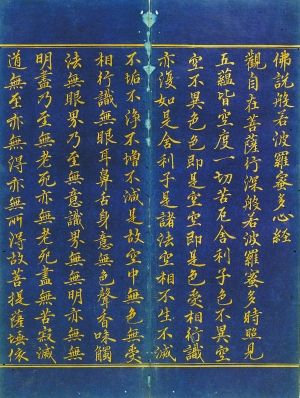 佛說般若波羅蜜多心經
觀自在菩薩行深般若波羅蜜多時照見
五蘊皆空度一切苦厄舍利子色不異空
空不異色色即是空空即是色受相行識
亦復如是舍利子是諸法空相不生不滅
不垢不淨不增不滅是故空中無色無受
相行識無眼耳鼻舌身意無色聲香味觸
法無眼界乃至無意識界無無明亦無無
明盡乃至無老死亦無老死盡無苦寂滅
道無至亦無得亦無所得故菩提薩埵依